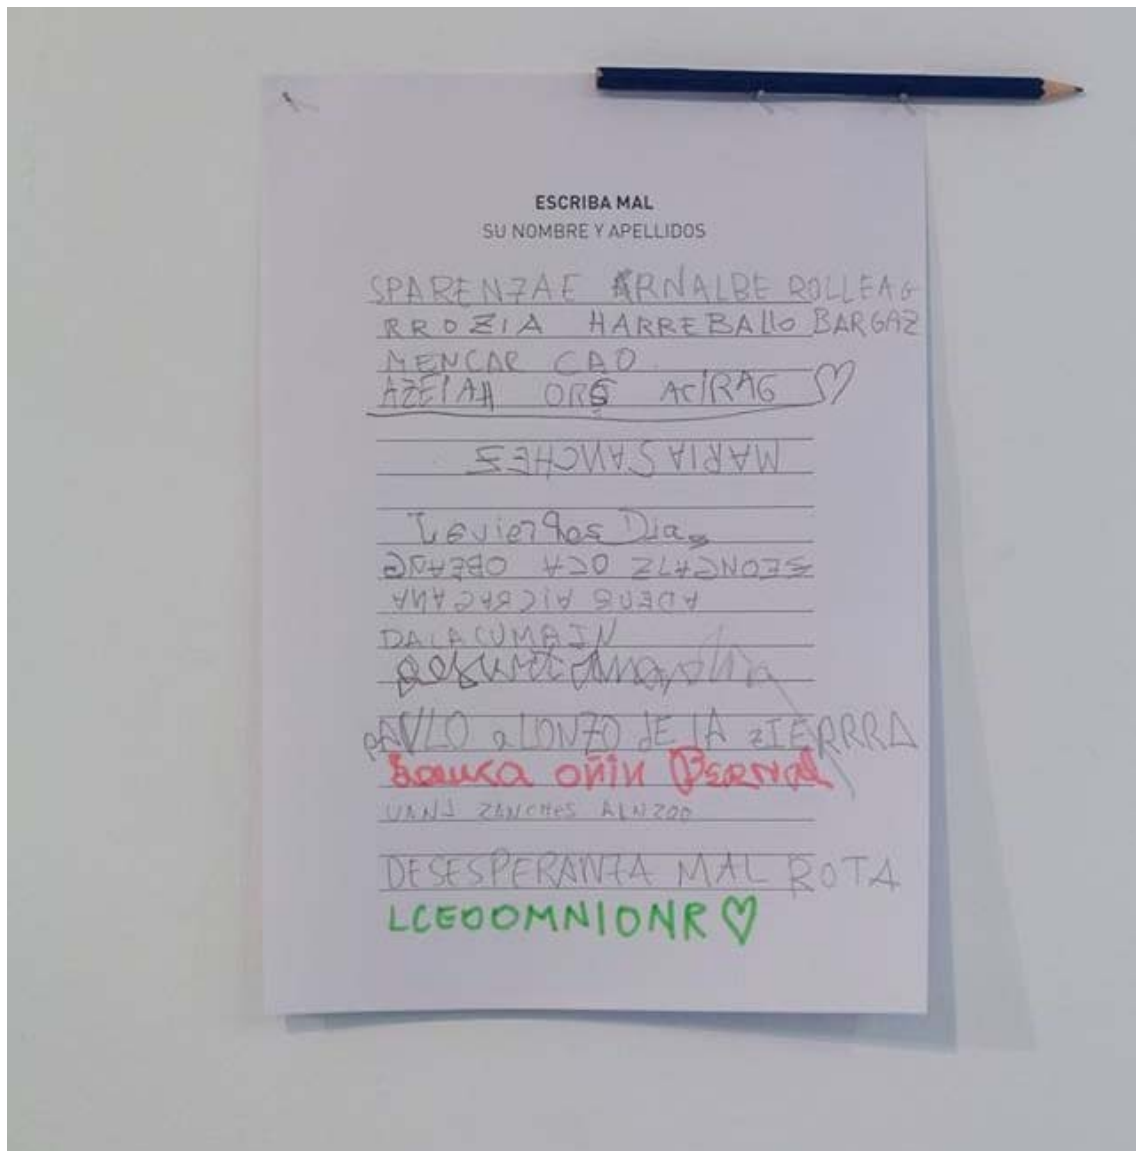 ESCRIBA MAL
SU NOMBRE Y APELLIDOS
SPARENZAE ARNALBE ROLLEAG
RROZIA HARREBALLO BARGAZ
MENCAR CAO
AZEIAH ORG ACIRAG
MARIA SANCHEZ
OCA
DALACUMAIN
PAVLO aLONZO DE LA ZIERRRA
OÑIN BERNAL
UANJ ZANCHES ALNZOO
DESESPERANZA MAL ROTA
LCEOOMNIONR